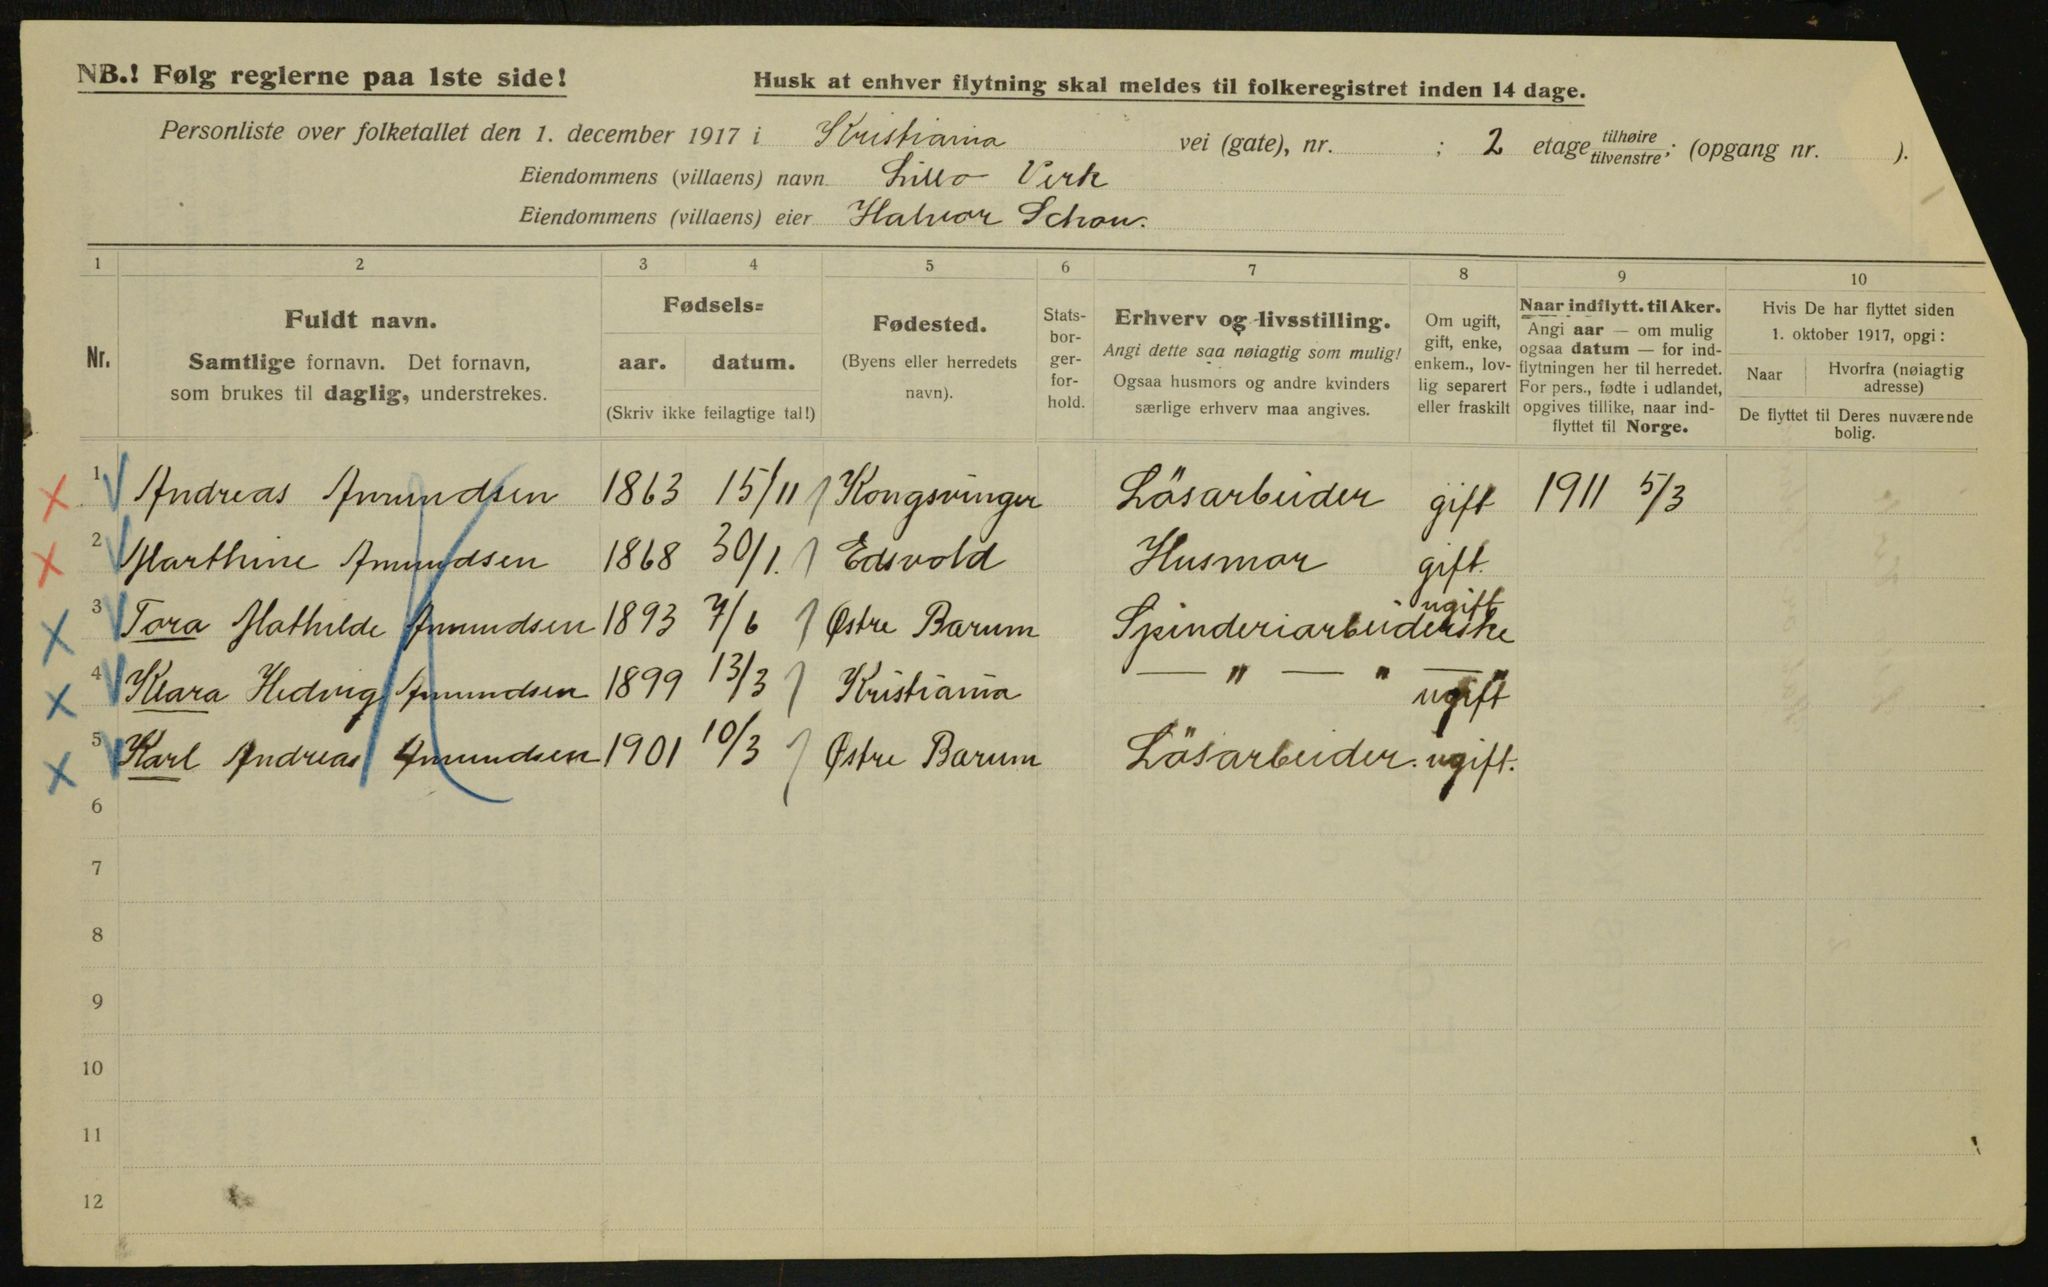 NB.! Følg reglerne paa 1ste side!
Husk at enhver flytning skal meldes til folkeregistret inden 14 dage.
Personliste over folketallet den 1. december 1917 i Kristiania vei (gate), nr. ; 2 etage tilhøire tilvenstre; (opgang nr. ).
Eiendommens (villaens) navn Lillo Verk
Eiendommens (villaens) eier Halvor Schou.
1 2 3 4 5 6 7 8 9 10
Nr.
Fuldt navn.
Samtlige fornavn. Det fornavn,
som brukes til daglig, understrekes.
Fødsels=
aar. datum.
(Skriv ikke feilagtige tal!)
Fødested.
(Byens eller herredets
navn).
Stats-
bor-
ger-
for-
hold.
Erhverv og livsstilling.
Angi dette saa nøiagtig som mulig!
Ogsaa husmors og andre kvinders
særlige erhverv maa angives.
Om ugift,
gift, enke,
enkem., lov-
lig separert
eller fraskilt
Naar indflytt. til Aker.
Angi aar — om mulig
ogsaa datum — for ind-
flytningen her til herredet.
For pers., fødte i udlandet,
opgives tillike, naar ind-
flyttet til Norge.
Hvis De har flyttet siden
1. oktober 1917, opgi:
Naar
Hvorfra (nøiagtig
adresse)
De flyttet til Deres nuværende
bolig.
1 Andreas Amundsen 1863 15/11 Kongsvinger Lösarbeider gift 1911 5/3
2 Marthine Amundsen 1868 30/1. Edsvold Husmor gift.
3 Tora Mathilde Amundsen 1893 7/6 Østre Barum Spinderiarbeiderske ugift
4 Klara Hedvig Amundsen 1899 13/3 Kristiania — " — " — " ugift
5 Karl Andreas Amundsen 1901 10/3 Østre Barum Lösarbeider. ugift.
6
7
8
9
10
11
12